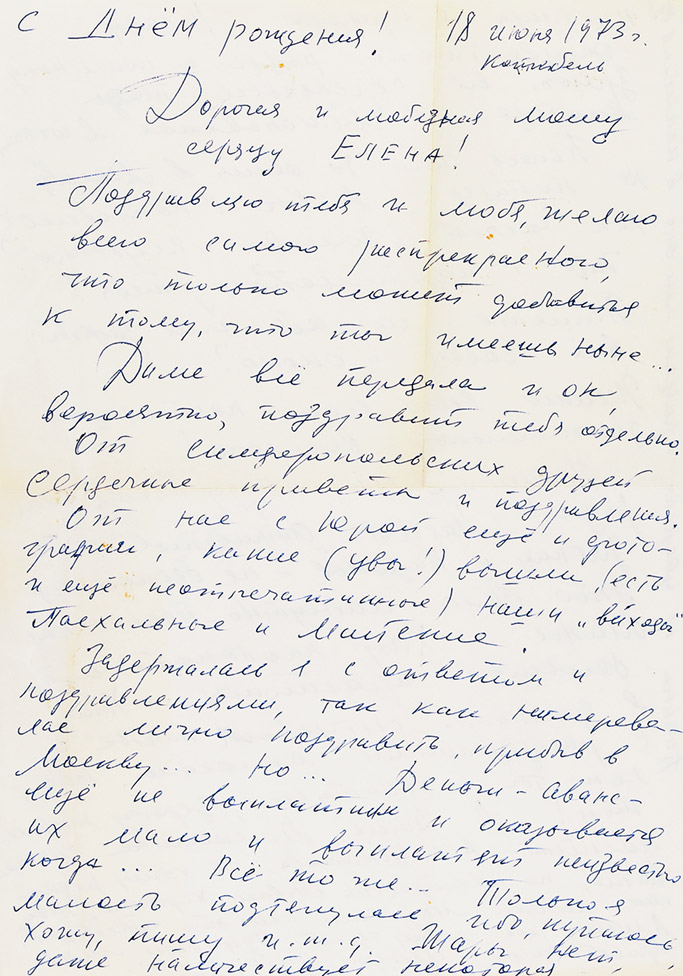 С Днём рождения! 18 июня 1973 г.
Коктебель
Дорогая и любезная моему
сердцу ЕЛЕНА!
Поздравляю тебя и любя, желаю
всего самого распрекрасного,
что только может добавиться
к тому, что ты имеешь ныне...
Диме всё передала и он,
вероятно, поздравит тебя отдельно.
От симферопольских друзей
сердечные приветы и поздравления.
От нас с Юрой ещё и фото-
графии, какие (увы!) вышли (есть
и ещё неотпечатанные) наши „выходы"
Пасхальные и Майские.
Задержалась я с ответом и
поздравлениями, так как намерева-
лась лично поздравить, прибыв в
Москву... Но... Деньги - аванс -
ещё не выплатили и оказывается
их мало и выплатят неизвестно
когда... Всё то же... Только я
малость подтянулась, ибо, купаюсь
хожу, пишу и.т.д. Жары нет,
даже наличествует некоторая